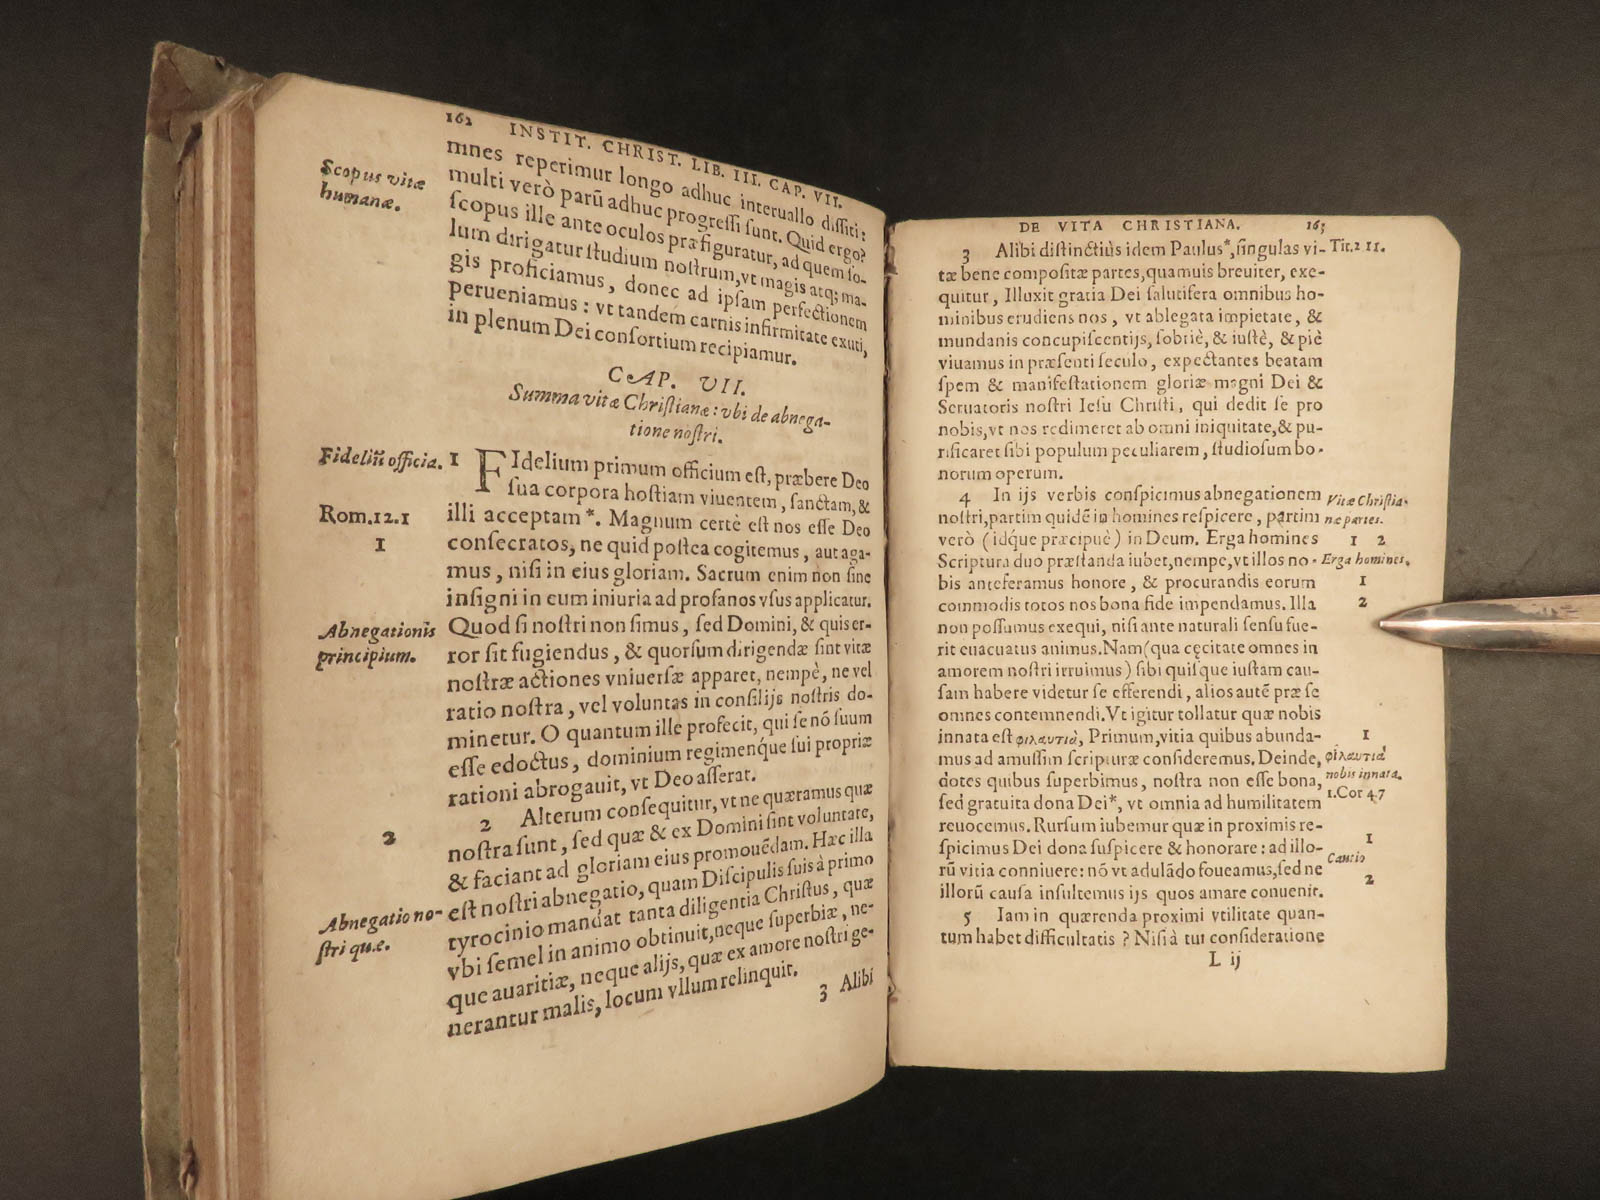 162 INSTIT. CHRIST. LIB. III. CAP. VII.
Scopus vitæ
humanæ.
mnes reperimur longo adhuc interuallo dissiti:
multi verò parũ adhuc progressi sunt. Quid ergo?
scopus ille ante oculos præfiguratur, ad quem so-
lum dirigatur studium nostrum, vt magis atq; ma-
gis proficiamus, donec ad ipsam perfectionem
perueniamus: vt tandem carnis infirmitate exuti,
in plenum Dei consortium recipiamur.
CAP. VII.
Summa vitæ Christianæ: vbi de abnega-
tione nostri.
Fideliũ officia.
Rom.12.1
1
Abnegationis
principium.
2
Abnegatio no-
stri quæ.
1 FIdelium primum officium est, præbere Deo
sua corpora hostiam viuentem, sanctam, &
illi acceptam*. Magnum certè est nos esse Deo
consecratos, ne quid postea cogitemus, aut aga-
mus, nisi in eius gloriam. Sacrum enim non sine
insigni in eum iniuria ad profanos vsus applicatur.
Quod si nostri non simus, sed Domini, & quis er-
ror sit fugiendus, & quorsum dirigendæ sint vitæ
nostræ actiones vniuersæ apparet, nempè, ne vel
ratio nostra, vel voluntas in consilijs nostris do-
minetur. O quantum ille profecit, qui se nõ suum
esse edoctus, dominium regimenq́ue sui propriæ
rationi abrogauit, vt Deo asserat.
2 Alterum consequitur, vt ne quæramus quæ
nostra sunt, sed quæ & ex Domini sint voluntate,
& faciant ad gloriam eius promouẽdam. Hæc illa
est nostri abnegatio, quam Discipulis suis à primo
tyrocinio mandat tanta diligentia Christus, quæ
vbi semel in animo obtinuit, neque superbiæ, ne-
que auaritiæ, neque alijs, quæ ex amore nostri ge-
nerantur malis, locum vllum relinquit.
3 Alibi
DE VITA CHRISTIANA. 163
3 Alibi distinctiùs idem Paulus*, singulas vi-
tæ bene compositæ partes, quamuis breuiter, exe-
quitur, Illuxit gratia Dei salutifera omnibus ho-
minibus erudiens nos, vt ablegata impietate, &
mundanis concupiscentijs, sobriè, & iustè, & piè
viuamus in præsenti seculo, expectantes beatam
spem & manifestationem gloriæ magni Dei &
Seruatoris nostri Iesu Christi, qui dedit se pro
nobis, vt nos redimeret ab omni iniquitate, & pu-
rificaret sibi populum peculiarem, studiosum bo-
norum operum.
4 In ijs verbis conspicimus abnegationem
nostri, partim quidẽ in homines respicere, partim
verò (idq́ue præcipuè) in Deum. Erga homines
Scriptura duo præstanda iubet, nempe, vt illos no-
bis anteferamus honore, & procurandis eorum
commodis totos nos bona fide impendamus. Illa
non possumus exequi, nisi ante naturali sensu fue-
rit euacuatus animus. Nam (qua cęcitate omnes in
amorem nostri irruimus) sibi quisque iustam cau-
sam habere videtur se efferendi, alios autẽ præ se
omnes contemnendi. Vt igitur tollatur quæ nobis
innata est φιλαυτιὰ, Primum, vitia quibus abunda-
mus ad amussim scripturæ consideremus. Deinde,
dotes quibus superbimus, nostra non esse bona,
sed gratuita dona Dei*, vt omnia ad humilitatem
reuocemus. Rursum iubemur quæ in proximis re-
spicimus Dei dona suspicere & honorare: ad illo-
rũ vitia conniuere: nõ vt adulãdo foueamus, sed ne
illorũ causa insultemus ijs quos amare conuenit.
5 Iam in quærenda proximi vtilitate quan-
tum habet difficultatis? Nisi à tui consideratione
L ij
Tit.2 11.
Vitæ Christia-
næ partes.
1 2
Erga homines.
1
2
1
φιλαυτιὰ
nobis innata.
1.Cor 4.7
1
Cautio
2